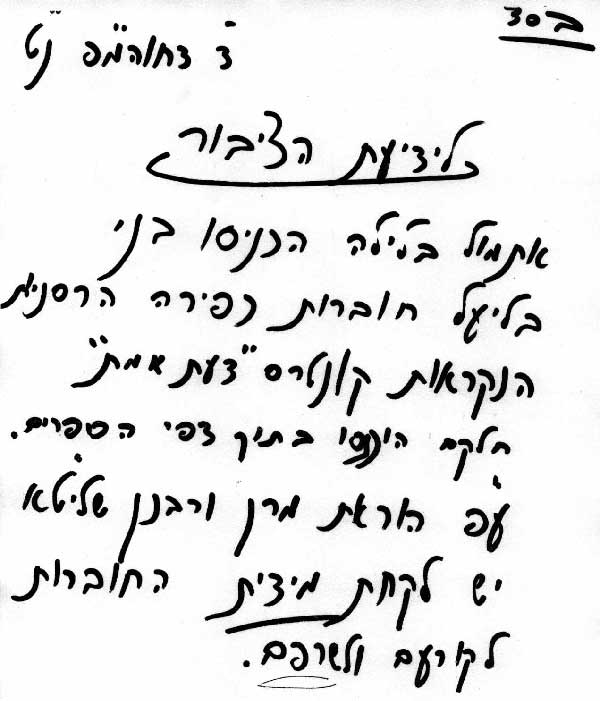 ב״סד
ד׳ דחוהמ״פ נ״ט
לידיעת הציבור
אתמול בלילה הכניסו בני
בליעל חוברות כפירה הרסנית
הנקראות קונטרס "דעת אמת"
חלקם הוכנסו בתוך דפי הספרים.
ע״פ הוראת מרן ורבנן שליט״א
יש לקחת מידית החוברות
לקורעם ולשרפם.